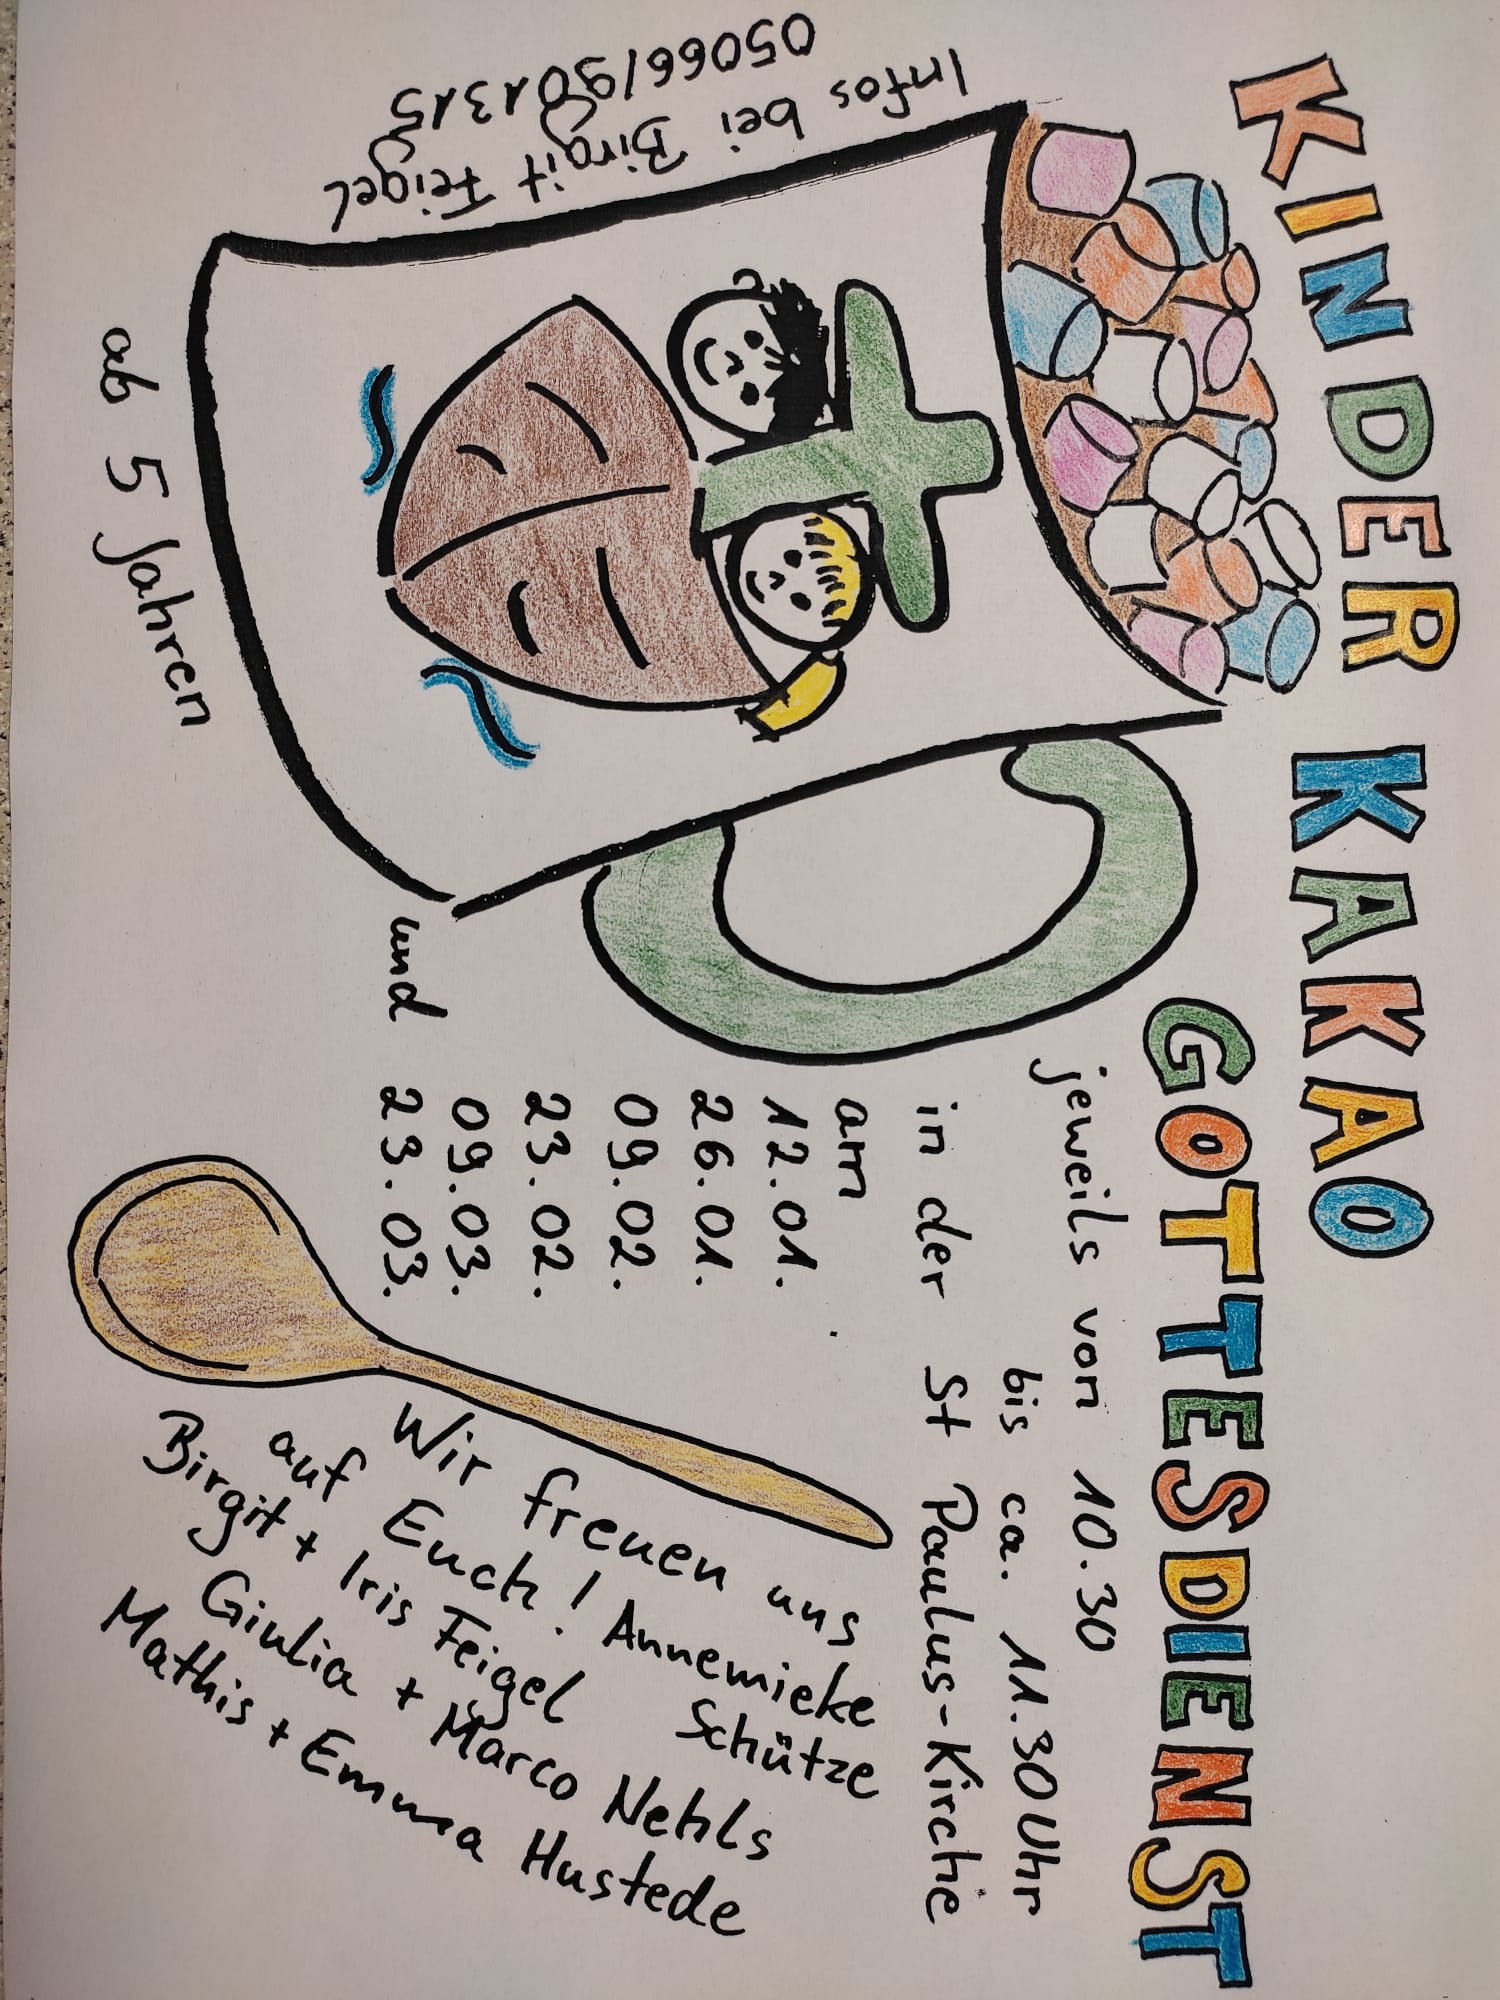 KINDER KAKAO
GOTTESDIENST
jeweils von 10.30
bis ca. 11.30 Uhr
in der St Paulus-Kirche
am
12.01.
26.01.
09.02.
23.02.
09.03.
und 23.03.
Wir freuen uns
auf Euch! Annemieke
Schütze
Birgit + Iris Feigel
Giulia + Marco Nehls
Mathis + Emma Hustede
ab 5 Jahren
Infos bei Birgit Feigel
05066/901315